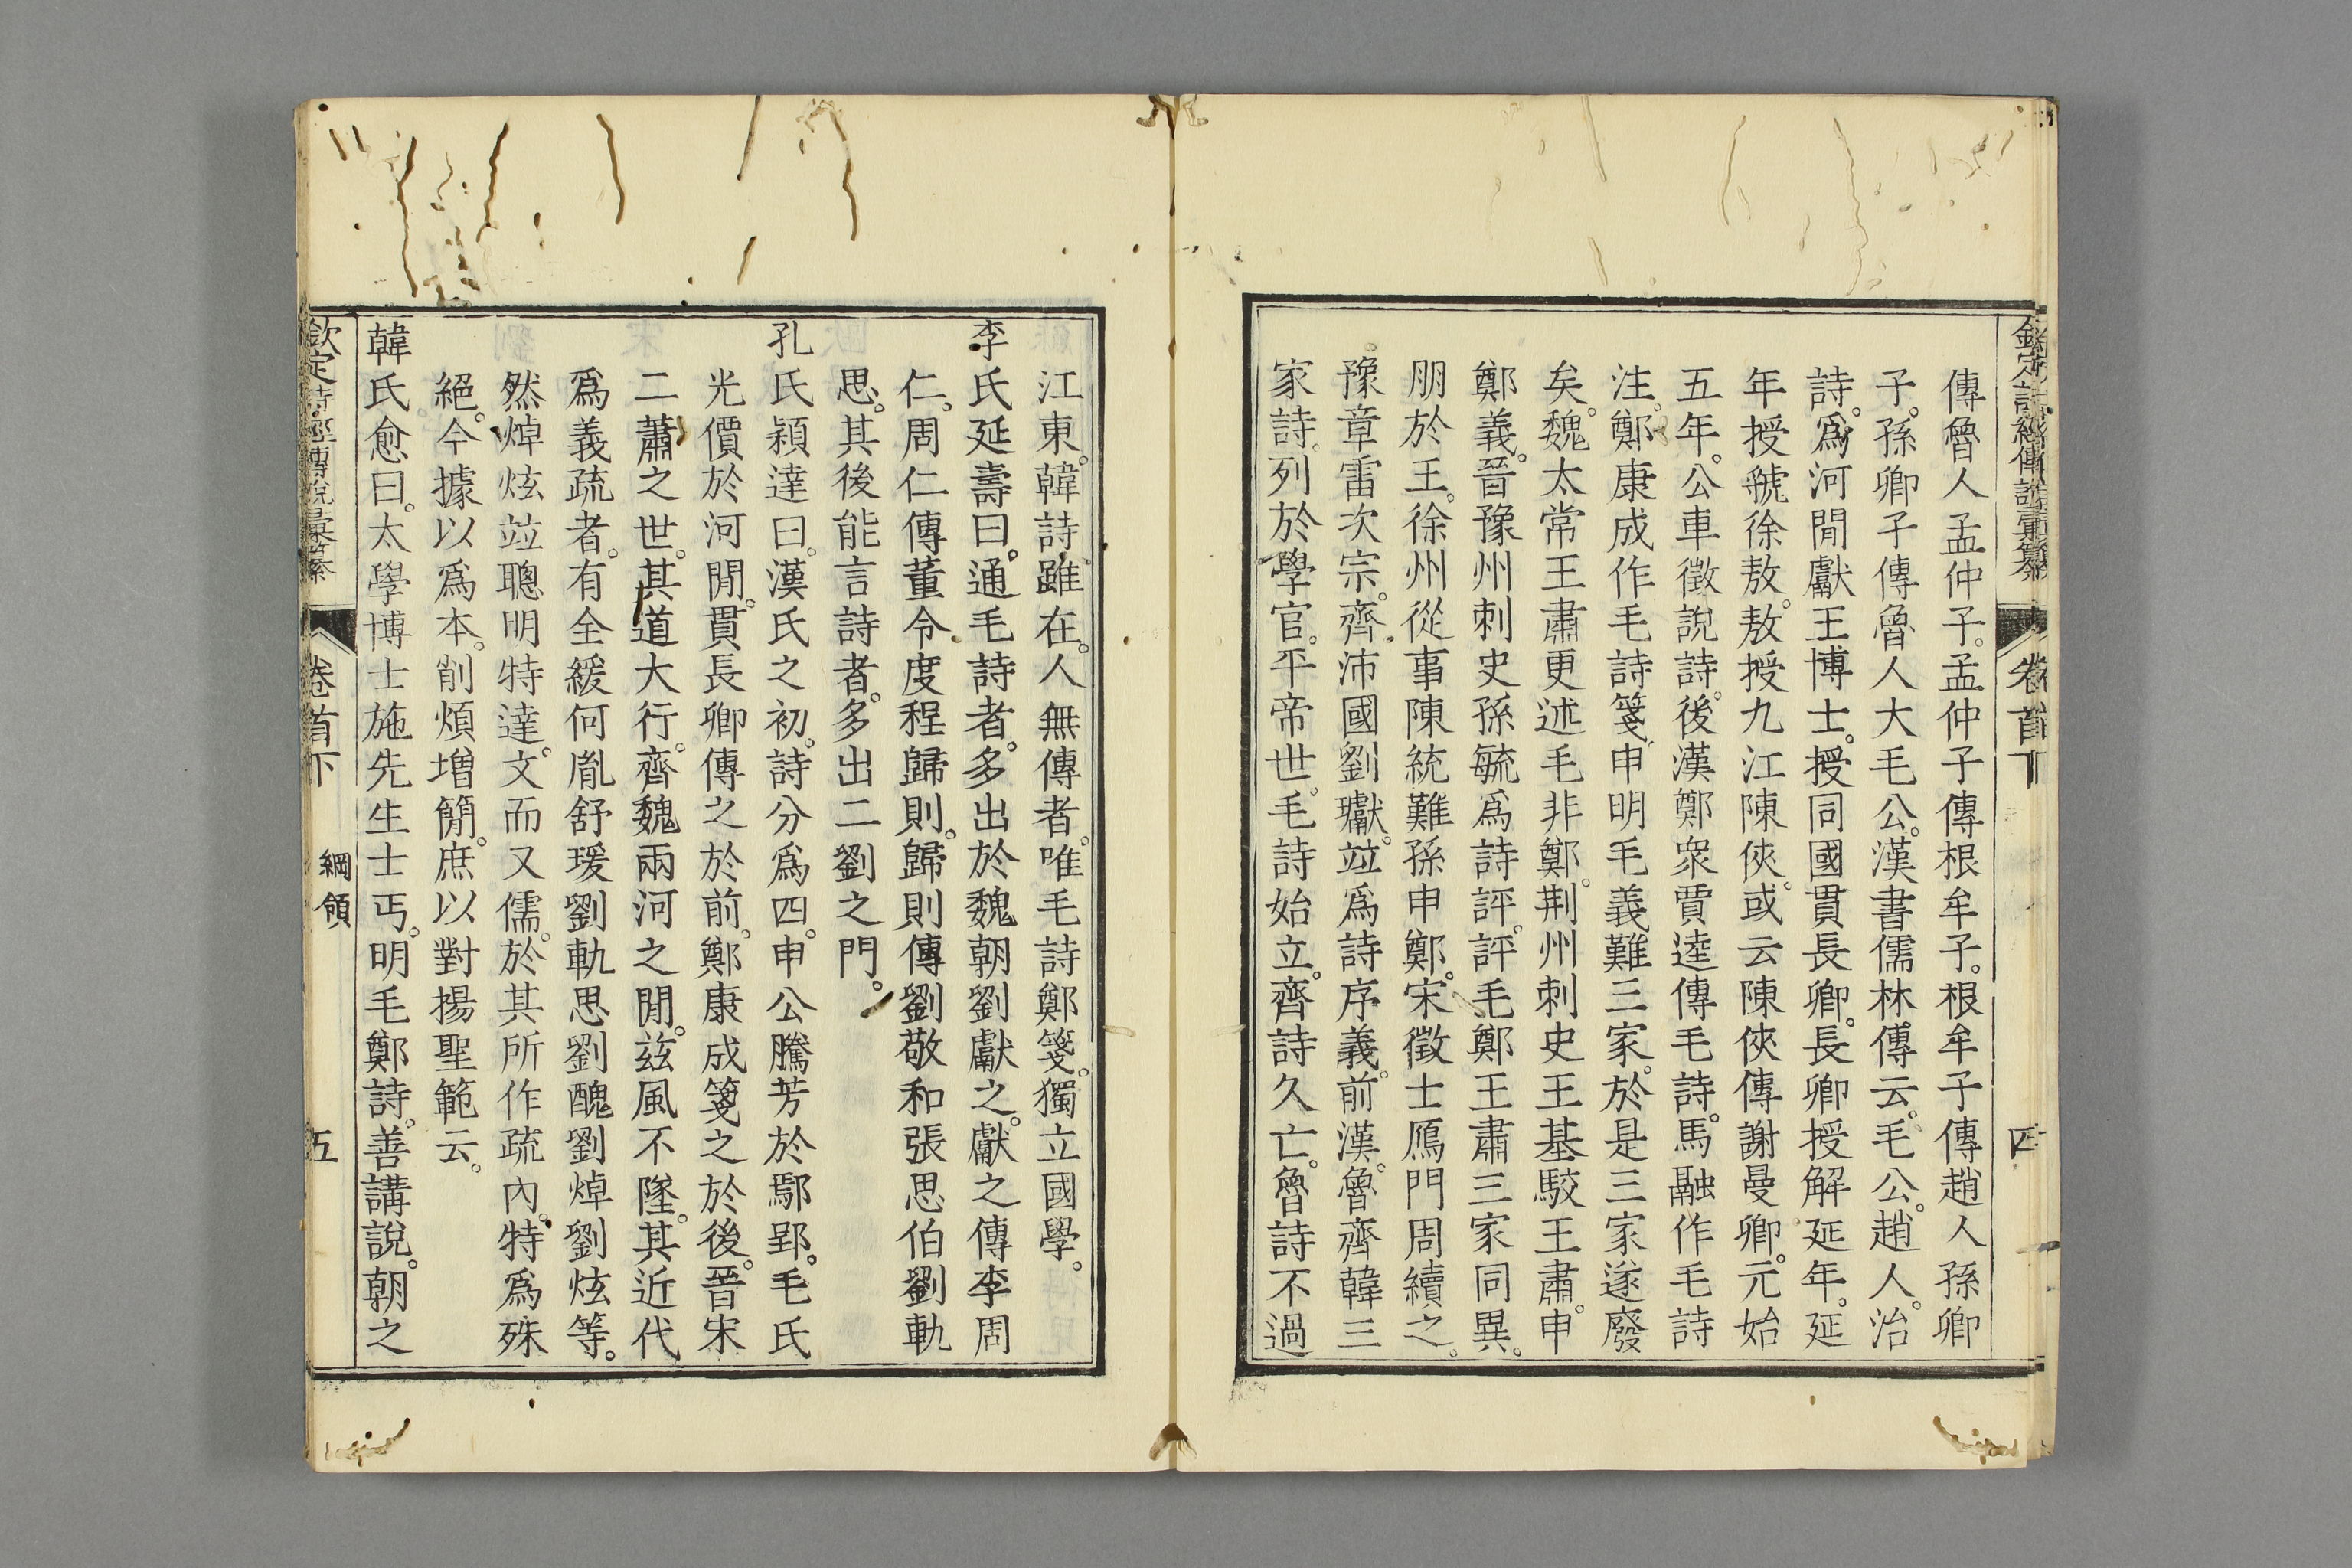 欽定詩經傳說彙纂 卷首下 四
傳魯人孟仲子。孟仲子傳根牟子。根牟子傳趙人孫卿
子。孫卿子傳魯人大毛公。漢書儒林傳云。毛公。趙人。治
詩。爲河閒獻王博士。授同國貫長卿。長卿授解延年。延
年授虢徐敖。敖授九江陳俠。或云陳俠傳謝曼卿。元始
五年。公車徵說詩。後漢鄭衆賈逵傳毛詩。馬融作毛詩
注。鄭康成作毛詩箋。申明毛義難三家。於是三家遂廢
矣。魏太常王肅更述毛非鄭。荆州刺史王基駮王肅。申
鄭義。晉豫州刺史孫毓爲詩評。評毛鄭王肅三家同異。
朋於王。徐州從事陳統難孫申鄭。宋徵士鴈門周續之。
豫章雷次宗。齊沛國劉瓛。竝爲詩序義。前漢。魯齊韓三
家詩。列於學官。平帝世。毛詩始立。齊詩久亡。魯詩不過
江東。韓詩雖在。人無傳者。唯毛詩鄭箋。獨立國學。
李氏延壽曰。通毛詩者。多出於魏朝劉獻之。獻之傳李周
仁。周仁傳董令度程歸則。歸則傳劉敬和張思伯劉軌
思。其後能言詩者。多出二劉之門。
孔氏穎達曰。漢氏之初。詩分爲四。申公騰芳於鄢郢。毛氏
光價於河閒。貫長卿傳之於前。鄭康成箋之於後。晉宋
二蕭之世。其道大行。齊魏兩河之閒。兹風不墜。其近代
爲義疏者。有全緩何胤舒瑗劉軌思劉醜劉焯劉炫等。
然焯炫竝聰明特達。文而又儒。於其所作疏內。特爲殊
絕。今據以爲本。削煩增簡。庶以對揚聖範云。
韓氏愈曰。太學博士施先生士丐。明毛鄭詩。善講說。朝之
欽定詩經傳說彙纂 卷首下 綱領 五